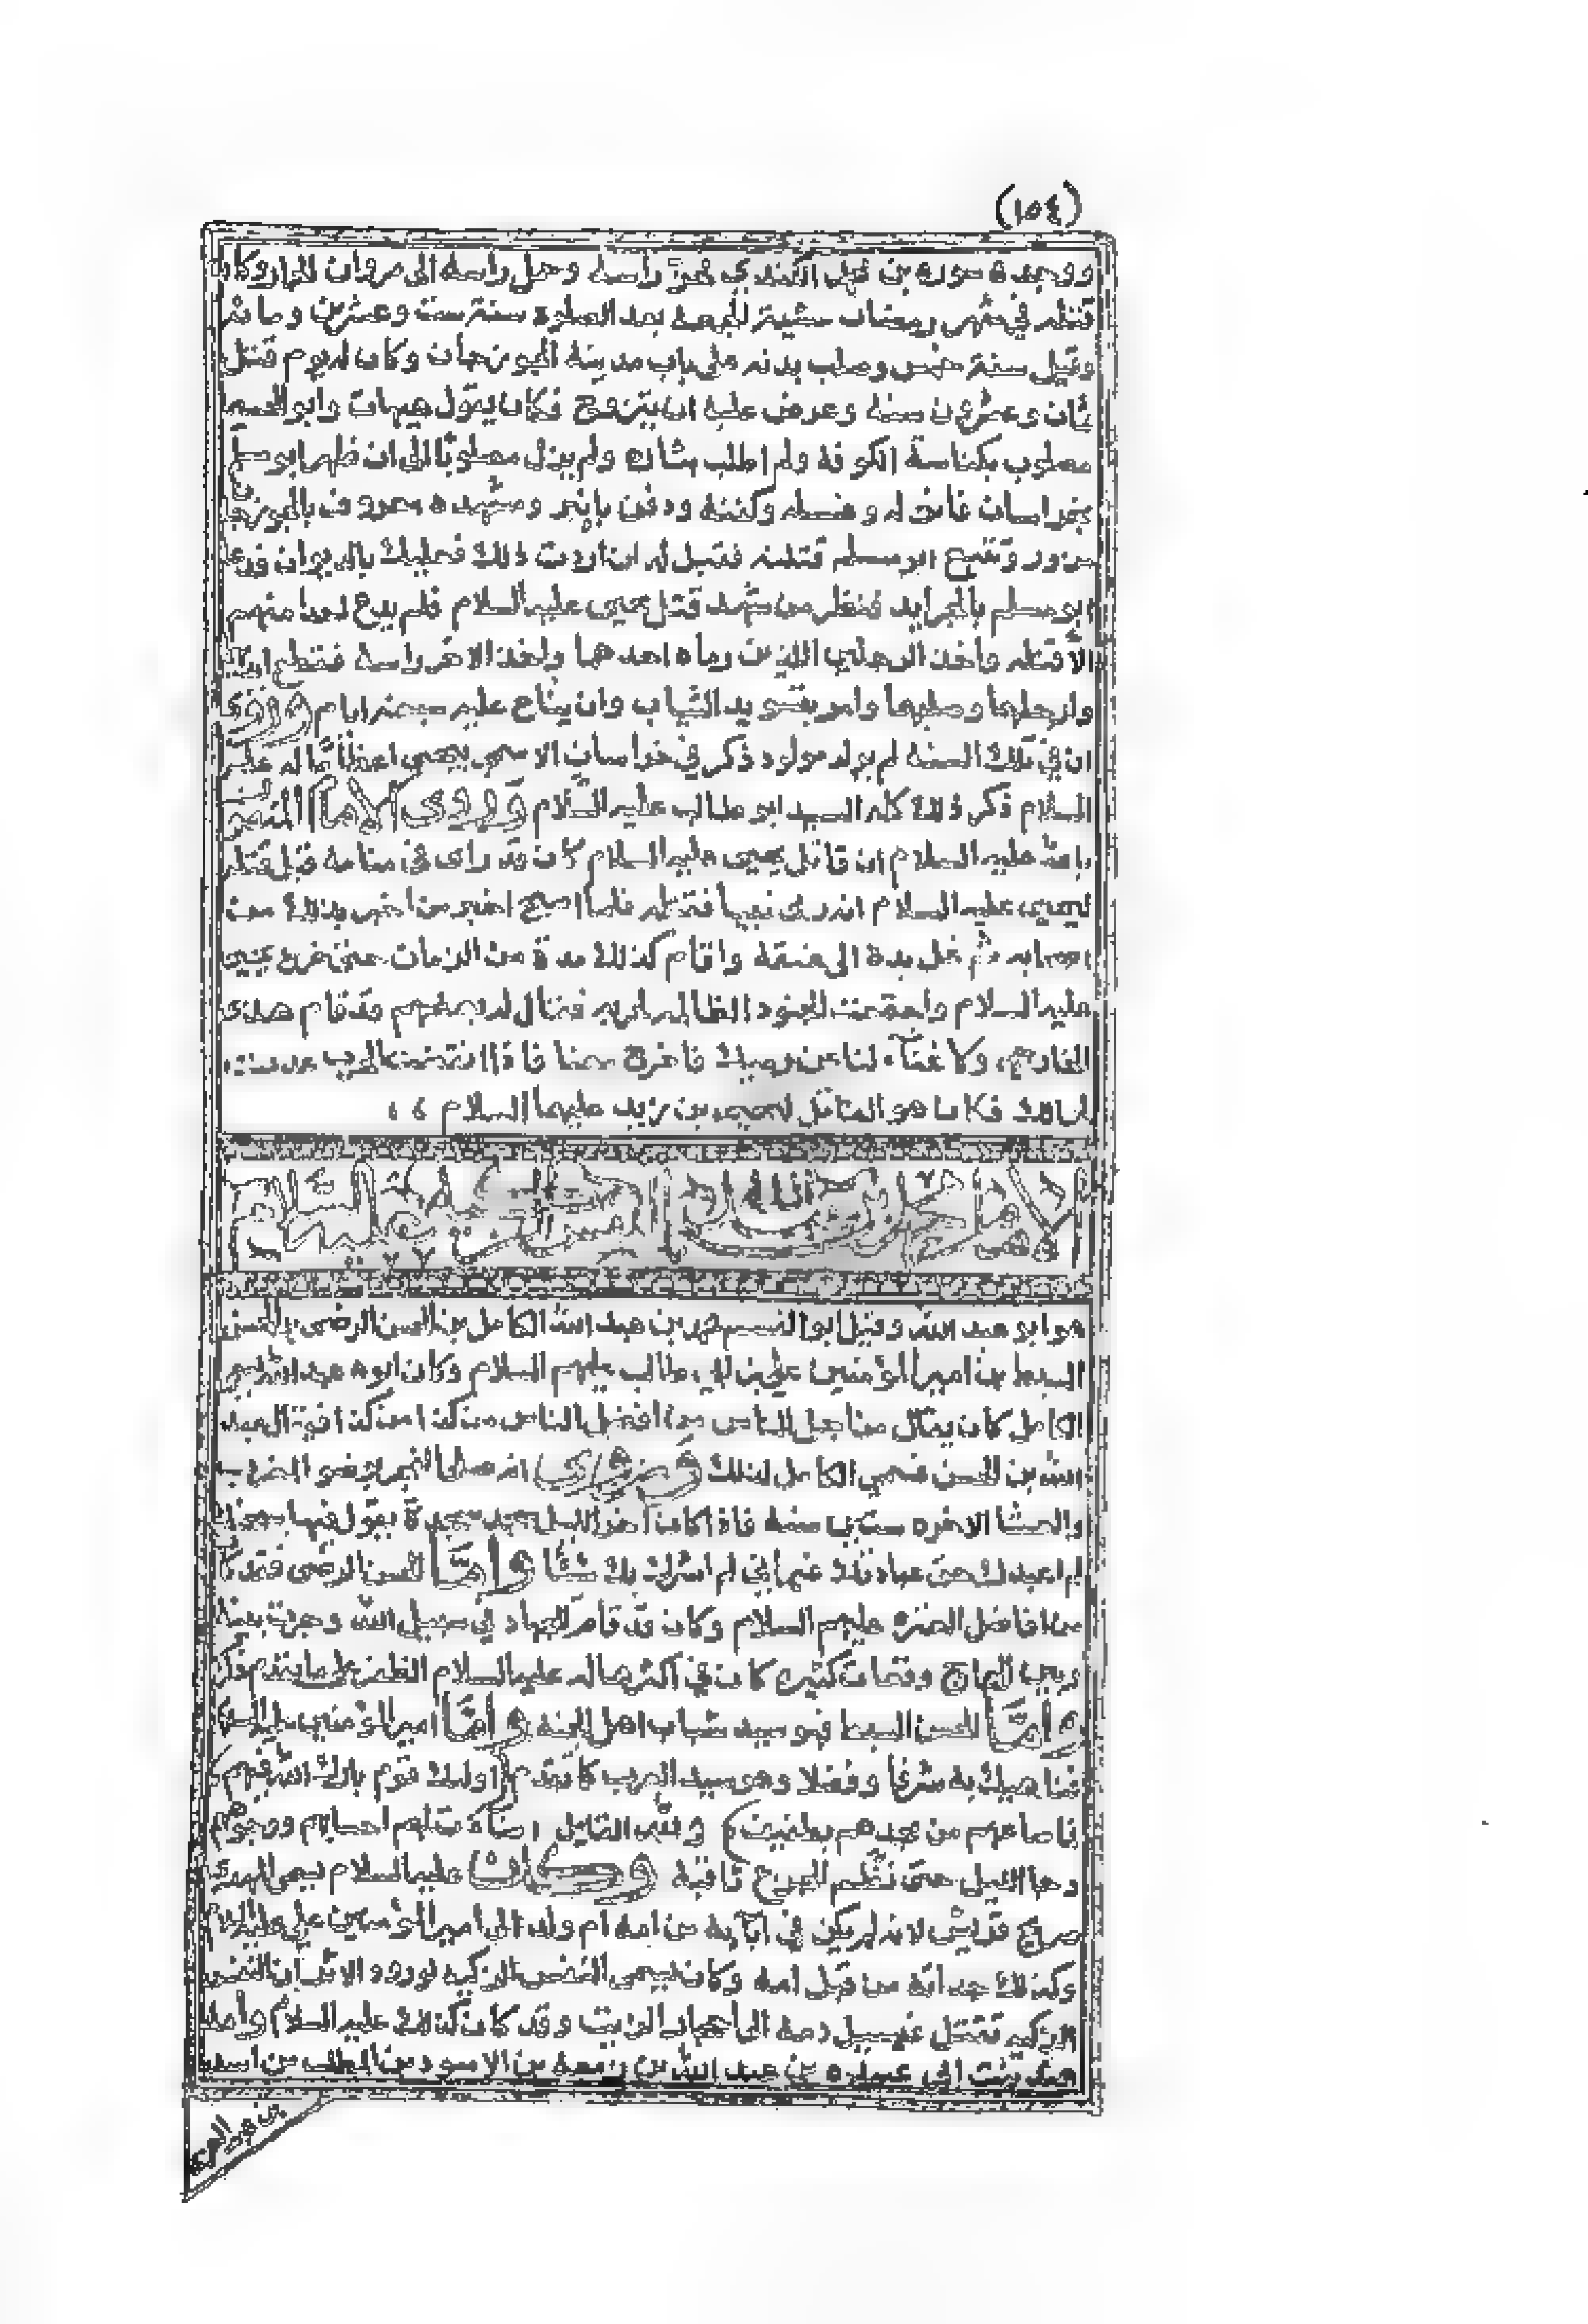 (١٥٤)
ووجده سوره بن محمد الكندي فحز راسه وحمل راسه الى مروان الحمار وكان
قتله في شهر رمضان عشية الجمعة بعد الصلوة سنة ست وعشرين ومائة
وقيل سنة خمس وصلب بدنه على باب مدينة الجوزجان وكان له يوم قتل
ثمان وعشرون سنة وعرض عليه ان يتزوج فكان يقول هيهات وابو الحسين
مصلوب بكناسة الكوفة ولم اطلب بثاره ولم يزل مصلوبًا الى ان ظهر ابو مسلم
بخراسان فانزله وغسله وكفنه ودفن بانبير ومشهده معروف بالجوزجان
مزور وتتبع ابو مسلم قتلته فقيل له ان اردت ذلك فعليك بالديوان فدعا
ابو مسلم بالجرايد فنظر من شهد قتل يحيى عليه السلام فلم يدع احدا منهم
الا قتله واخذ الرجلين اللذين رماه احدهما واخذ الاخر راسه فقطع ايديهما
وارجلهما وصلبهما وامر بتسويد الثياب وان يناح عليه سبعة ايام وروي
ان في تلك السنة لم يولد مولود ذكر في خراسان الا سمي يحيى اعظامًا له عليه
السلام ذكر ذلك كله السيد ابو طالب عليه السلام وروى الامام المنصور
بالله عليه السلام ان قاتل يحيى عليه السلام كان قد راى في منامه قبل قتله
ليحيى عليه السلام انه رمى نبيا فقتله فلما اصبح اخبر من اخبر بذلك من
اصحابه ثم غل يده الى عنقه واقام كذلك مدة من الزمان حتى خرج يحيى
عليه السلام واجتمعت الجنود الظالمه لحربه فقال له بعضهم قد قام هذا
الخارجي ولا غناء لنا عن رميك فاخرج معنا فاذا انقضت الحرب عدت
لذلك فكان هو القاتل ليحيى بن زيد عليهما السلام
هو ابو عبد الله وقيل ابو القسم محمد بن عبد الله الكامل بن الحسن الرضى بن الحسن
السبط بن امير المؤمنين علي بن ابي طالب عليهم السلام وكان ابوه عبد الله يسمى
الكامل كان يقال من اجمل الناس من افضل الناس من كذا من كذا فيقال عبد
الله بن الحسن فسمي الكامل لذلك وروي انه صلى الفجر بوضوء المغرب
والعشا الاخره ستين سنة فاذا كان اخر الليل سجد سجدة يقول فيها سبحانك
لم اعبدك حق عبادتك غير اني لم اشرك بك شيئًا واما الحسن الرضى فقد كان
من افاضل العترة عليهم السلام وكان قد قام بالجهاد في سبيل الله وجرت بينه
وبين الحجاج وقعات كثيره كان في اكثرها له عليه السلام الظفر على ما يتقدم ذكره
واما الحسن السبط فهو سيد شباب اهل الجنة واما امير المؤمنين عليه السلام
فناهيك به شرفًا وفضلا وهو سيد العرب كما تقدم اولئك قوم بارك الله فيهم
ولله القائل اضاءت لهم احسابهم ووجوههم
دجا الليل حتى نظم الجزع ثاقبه وكان عليه السلام يسمى المهدي
صريح قريش لانه لم يكن في آبائه من امه ام ولد الى امير المؤمنين علي عليه السلام
وكذلك جداته من قبل امه وكان يسمى النفس الزكيه لورود الاثر ان النفس
الزكيه تقتل فيسيل دمه الى احجار الزيت وقد كان كذلك عليه السلام وامه
هند بنت ابي عبيده بن عبد الله بن زمعه بن الاسود بن المطلب بن اسد